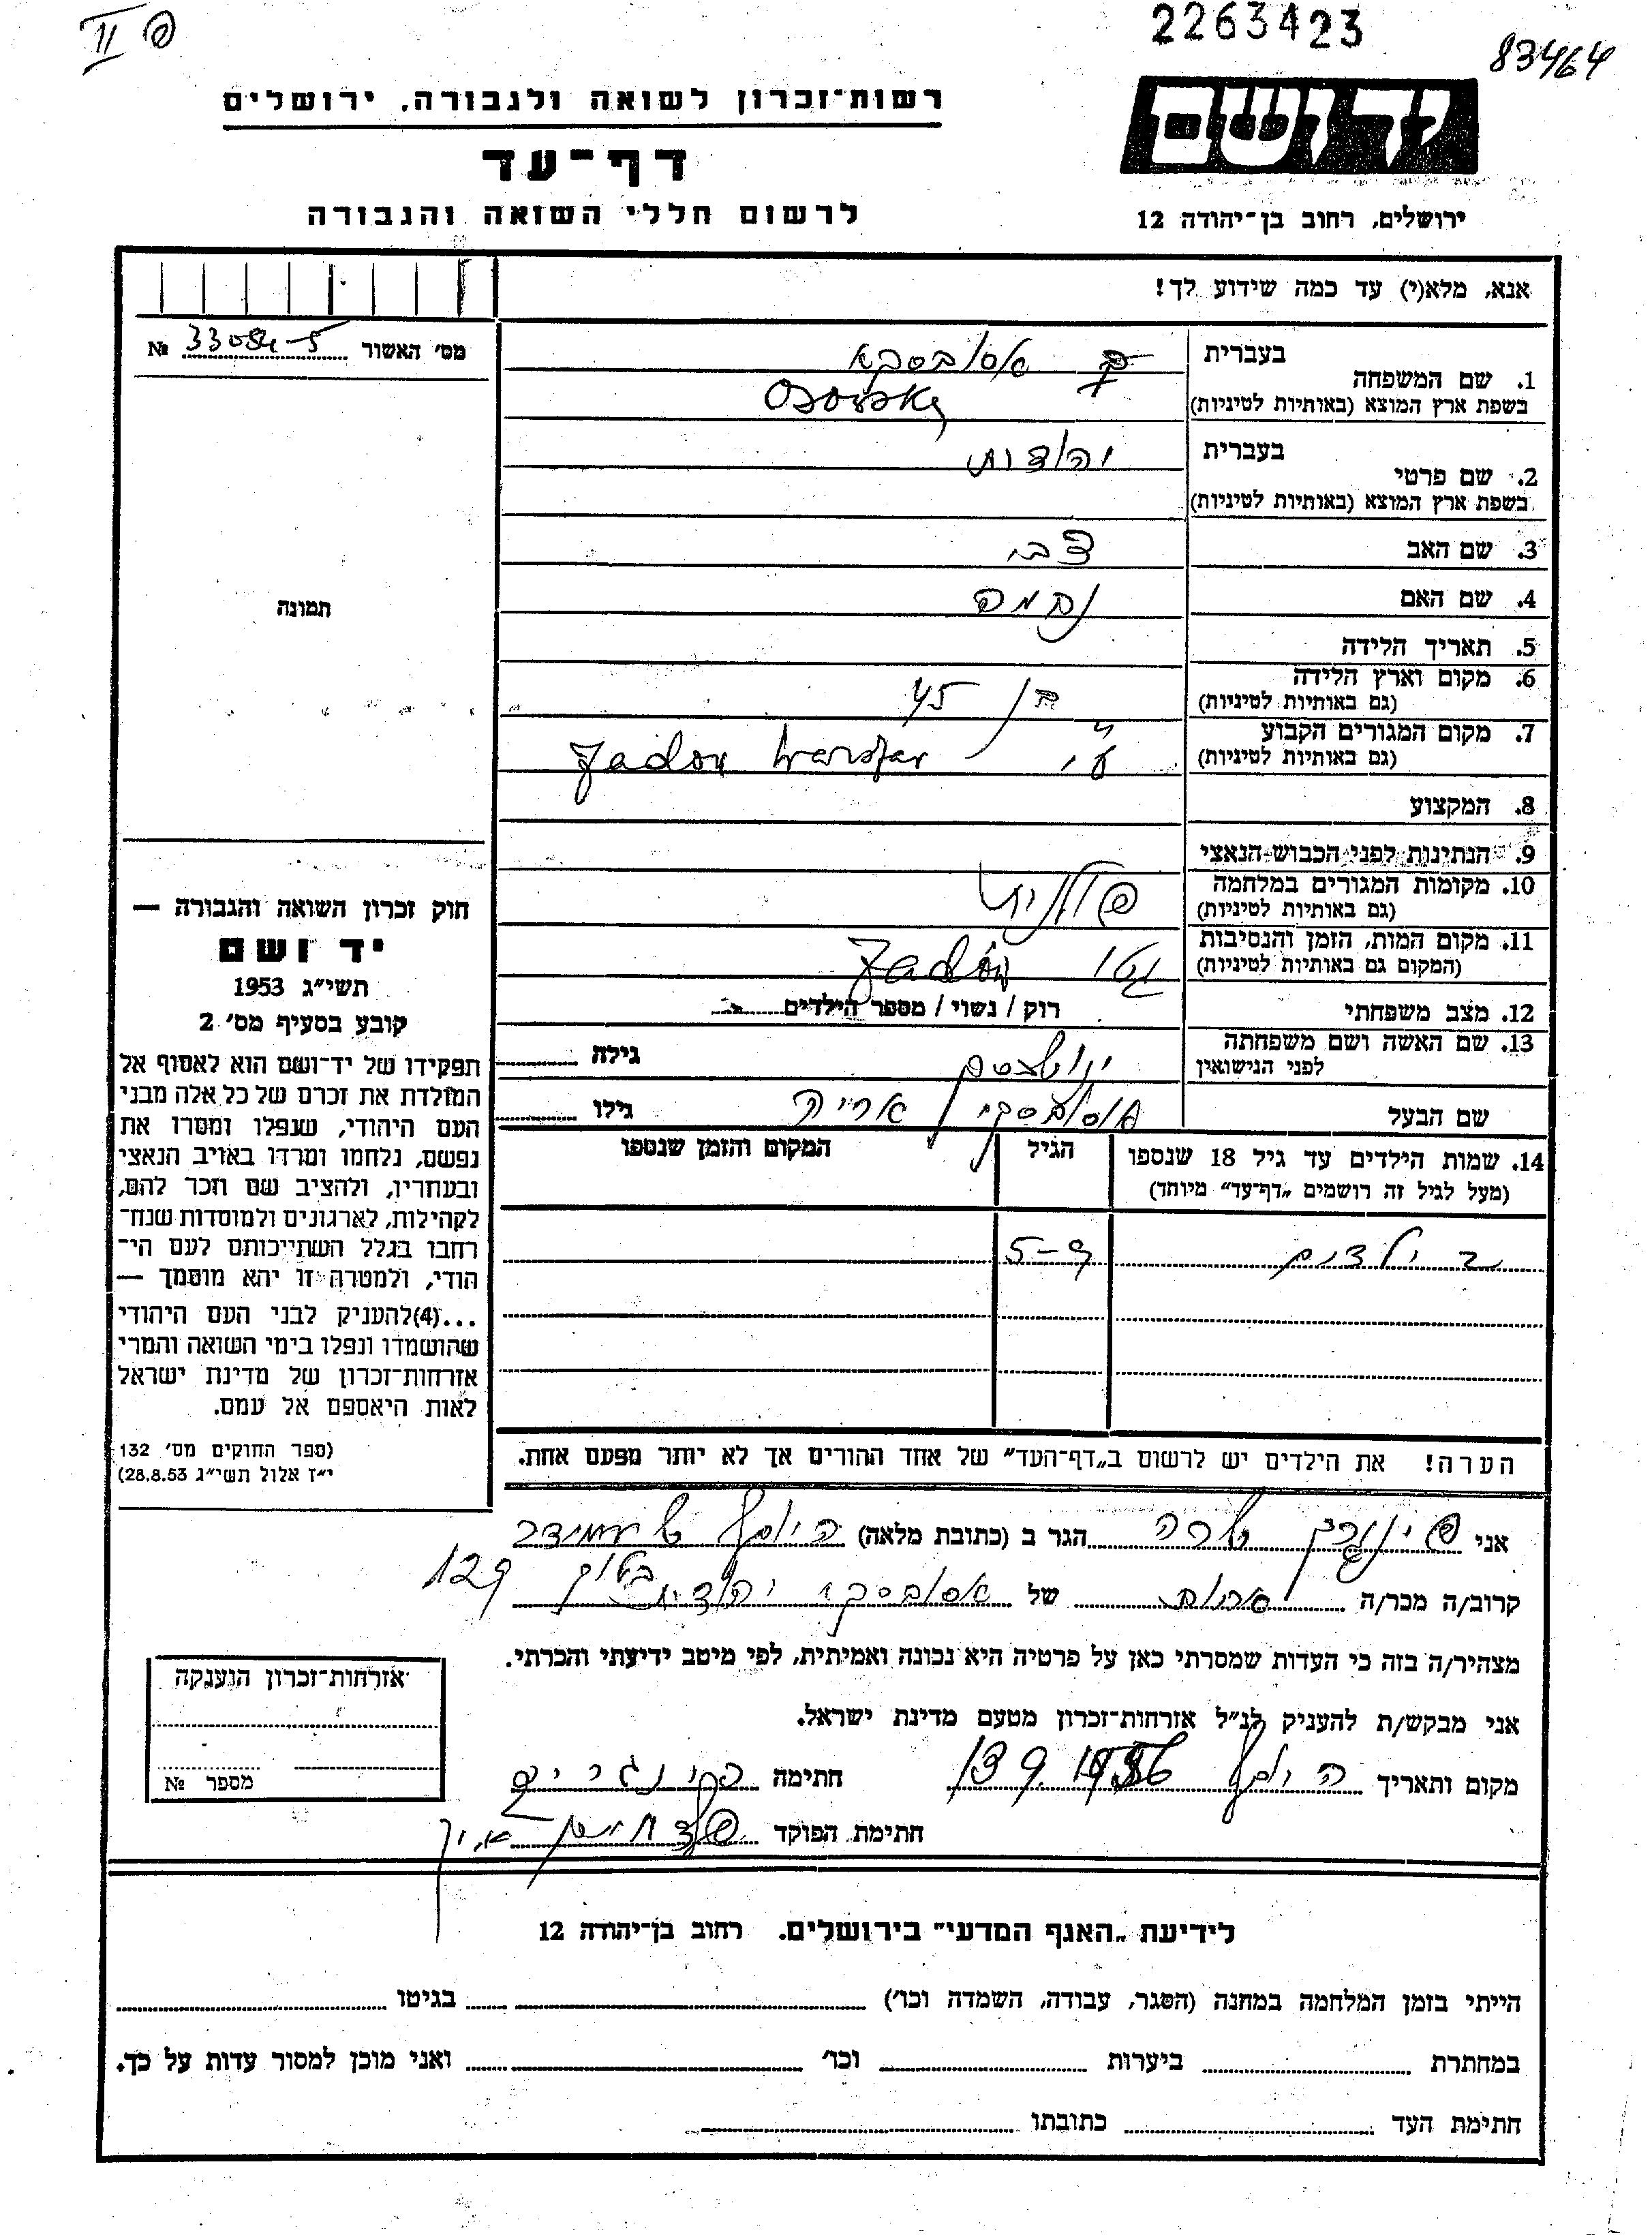 2263423
83464
II
יד ושם
ירושלים, רחוב בן־יהודה 12
רשות־זכרון לשואה ולגבורה, ירושלים
דף־עד
לרשום חללי השואה והגבורה
אנא, מלא(י) עד כמה שידוע לך!
מס' האשור 33084-5 №
תמונה
1. שם המשפחה
בעברית
בשפת ארץ המוצא (באותיות לטיניות)
2. שם פרטי
בעברית יהודית
בשפת ארץ המוצא (באותיות לטיניות)
3. שם האב צבי
4. שם האם נחמה
5. תאריך הלידה
6. מקום וארץ הלידה
(גם באותיות לטיניות) בן 45
7. מקום המגורים הקבוע
(גם באותיות לטיניות)
8. המקצוע
9. הנתינות לפני הכבוש הנאצי
10. מקומות המגורים במלחמה
(גם באותיות לטיניות) פולנית
11. מקום המות, הזמן והנסיבות
(המקום גם באותיות לטיניות) גטו
12. מצב משפחתי רוק / נשוי / מספר הילדים
13. שם האשה ושם משפחתה
לפני הנישואין גילה
שם הבעל אסובסקי אריה גילו
14. שמות הילדים עד גיל 18 שנספו הגיל המקום והזמן שנספו
(מעל לגיל זה רושמים „דף־עד" מיוחד)
2 ילדים 5-9
הערה! את הילדים יש לרשום ב„דף־העד" של אחד ההורים אך לא יותר מפעם אחת.
חוק זכרון השואה והגבורה —
יד ושם
תשי"ג 1953
קובע בסעיף מס' 2
תפקידו של יד־ושם הוא לאסוף אל
המולדת את זכרם של כל אלה מבני
העם היהודי, שנפלו ומסרו את
נפשם, נלחמו ומרדו באויב הנאצי
ובעוזריו, ולהציב שם וזכר להם,
לקהילות, לארגונים ולמוסדות שנח־
רבו בגלל השתייכותם לעם הי־
הודי, ולמטרה זו יהא מוסמך —
...(4)להעניק לבני העם היהודי
שהושמדו ונפלו בימי השואה והמרי
אזרחות־זכרון של מדינת ישראל
לאות היאספם אל עמם.
(ספר החוקים מס' 132
י"ז אלול תשי"ג 28.8.53)
אני שרה הגר ב (כתובת מלאה)
קרוב/ה מכר/ה של אסובסקי יהודית 129
מצהיר/ה בזה כי העדות שמסרתי כאן על פרטיה היא נכונה ואמיתית, לפי מיטב ידיעתי והכרתי.
אני מבקש/ת להעניק לנ"ל אזרחות־זכרון מטעם מדינת ישראל.
מקום ותאריך 13.9.1956 חתימה
חתימת הפוקד
אזרחות־זכרון הוענקה
מספר №
לידיעת „האגף המדעי" בירושלים. רחוב בן־יהודה 12
הייתי בזמן המלחמה במחנה (הסגר, עבודה, השמדה וכו') בגיטו
במחתרת ביערות וכו' ואני מוכן למסור עדות על כך.
חתימת העד כתובתו